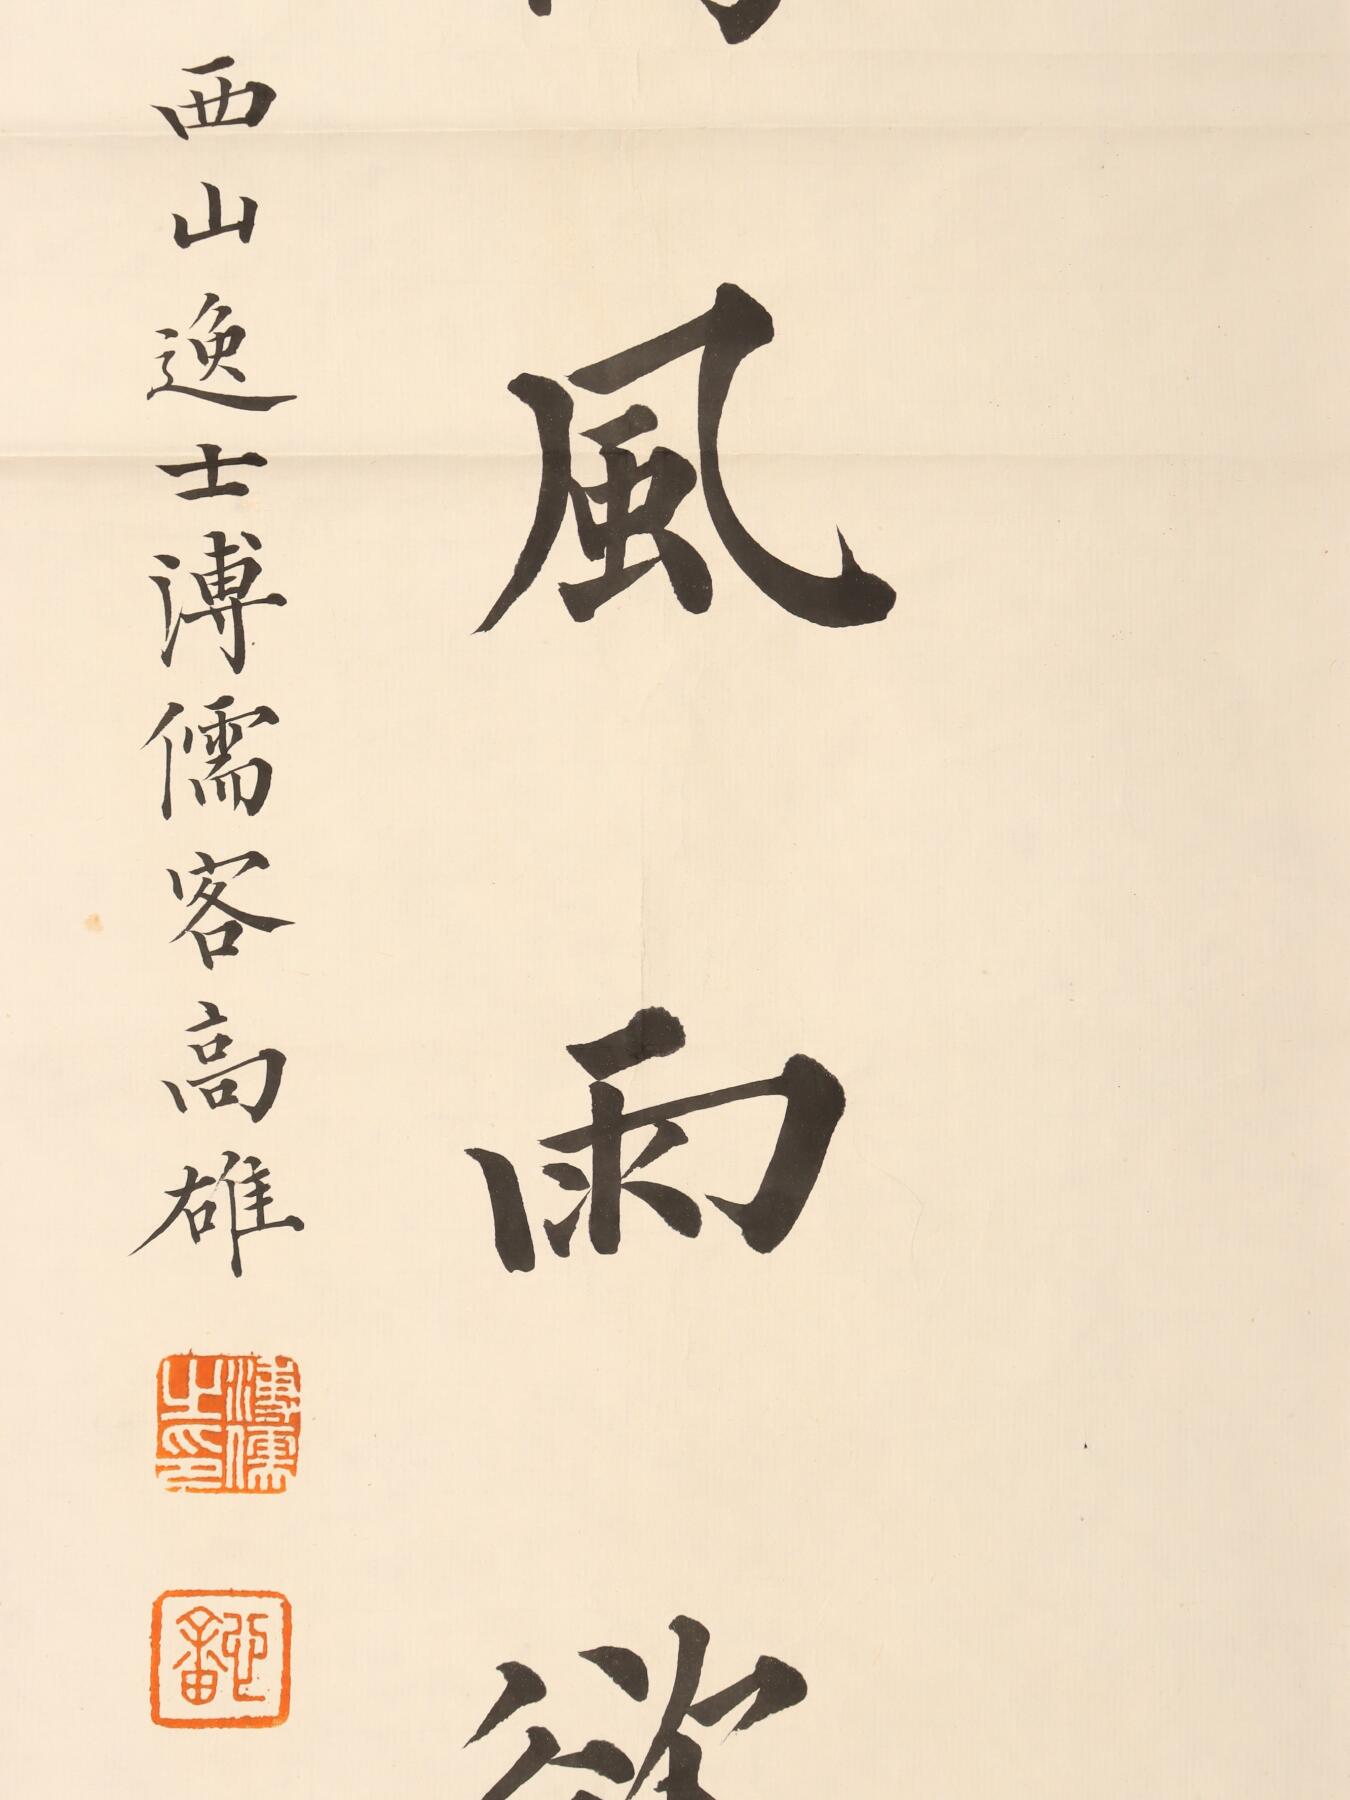 風雨
西山逸士溥儒客高雄
溥儒之印